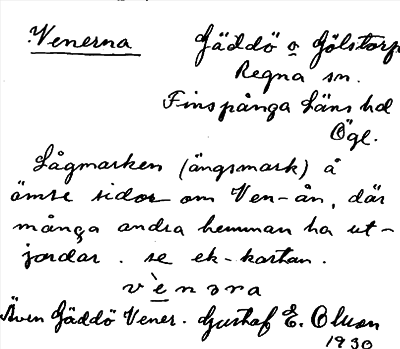 Venerna
Gäddö o Gölstorp
Regna sn.
Finspånga Läns hd
Ögl.
Lågmarken (ängsmark) å
ömse sidor om Ven-ån, där
många andra hemman ha ut-
jordar. se ek-kartan.
vènana
Även Gäddö Vener. Gustaf E. Olsson
1930